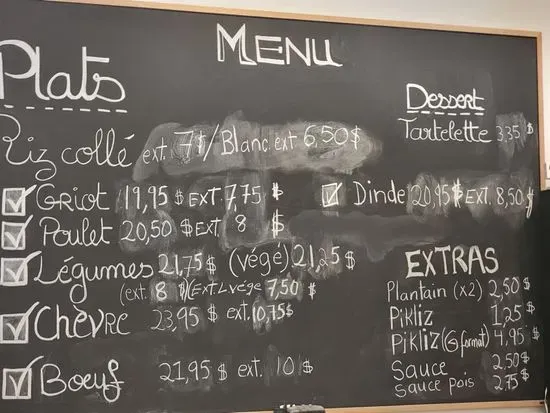 MENU
Plats
Riz collé ext. 7$/Blanc ext 6,50$
Griot 19,95 $ EXT. 7,75 $
Poulet 20,50 $ EXT. 8 $
Légumes 21,75 $ (végé) 21,25 $
(ext. 8 $)(EXT Lvégé 7,50 $
Chèvre 23,95 $ ext. 10,75$
Boeuf 21,95 $ ext. 10 $
Dinde 20,95$ EXT. 8,50 $
Dessert
Tartelette 3.35 $
EXTRAS
Plantain (x2) 2,50 $
Pikliz 1,25 $
Pikliz (G format) 4,95 $
Sauce 2,50 $
Sauce pois 2,75 $